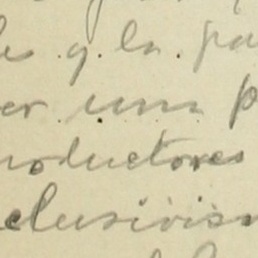 q. la. pa
er una p
oductores
clusivism